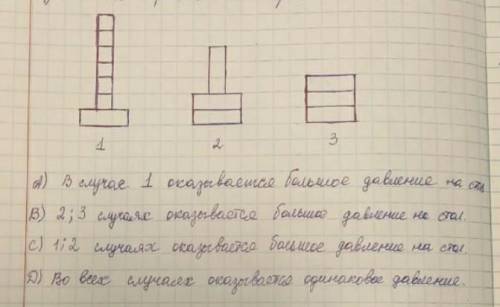 1 2 3
A) В случае 1 оказывается большое давление на
B) 2; 3 случаях оказывается большое давление на стол.
C) 1; 2 случаях оказывается большое давление на стол.
D) Во всех случаях оказывается одинаковое давление.